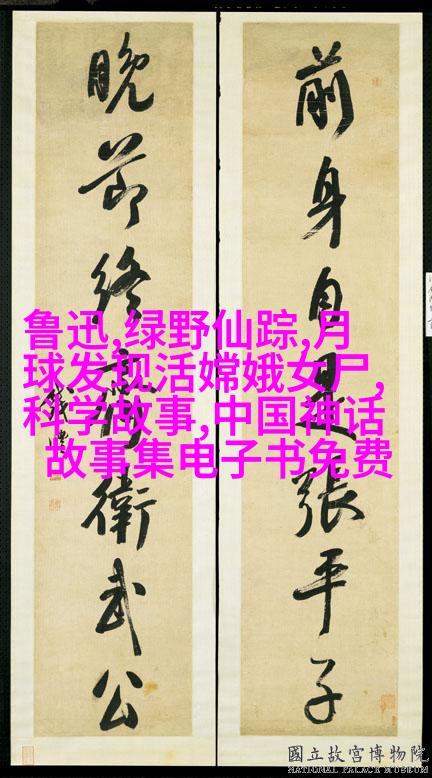 前身自是張平子
晚節終衛武公
鲁迅,绿野仙踪,月
球发现活嫦娥女尸,
科学故事,中国神话
故事集电子书免费
國立故宮博物院
NATIONAL PALACE MUSEUM